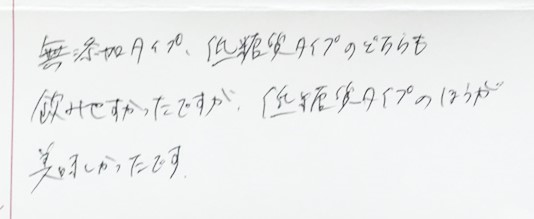 無添加タイプ、低糖質タイプのどちらも
飲みやすかったですが、低糖質タイプのほうが
美味しかったです。